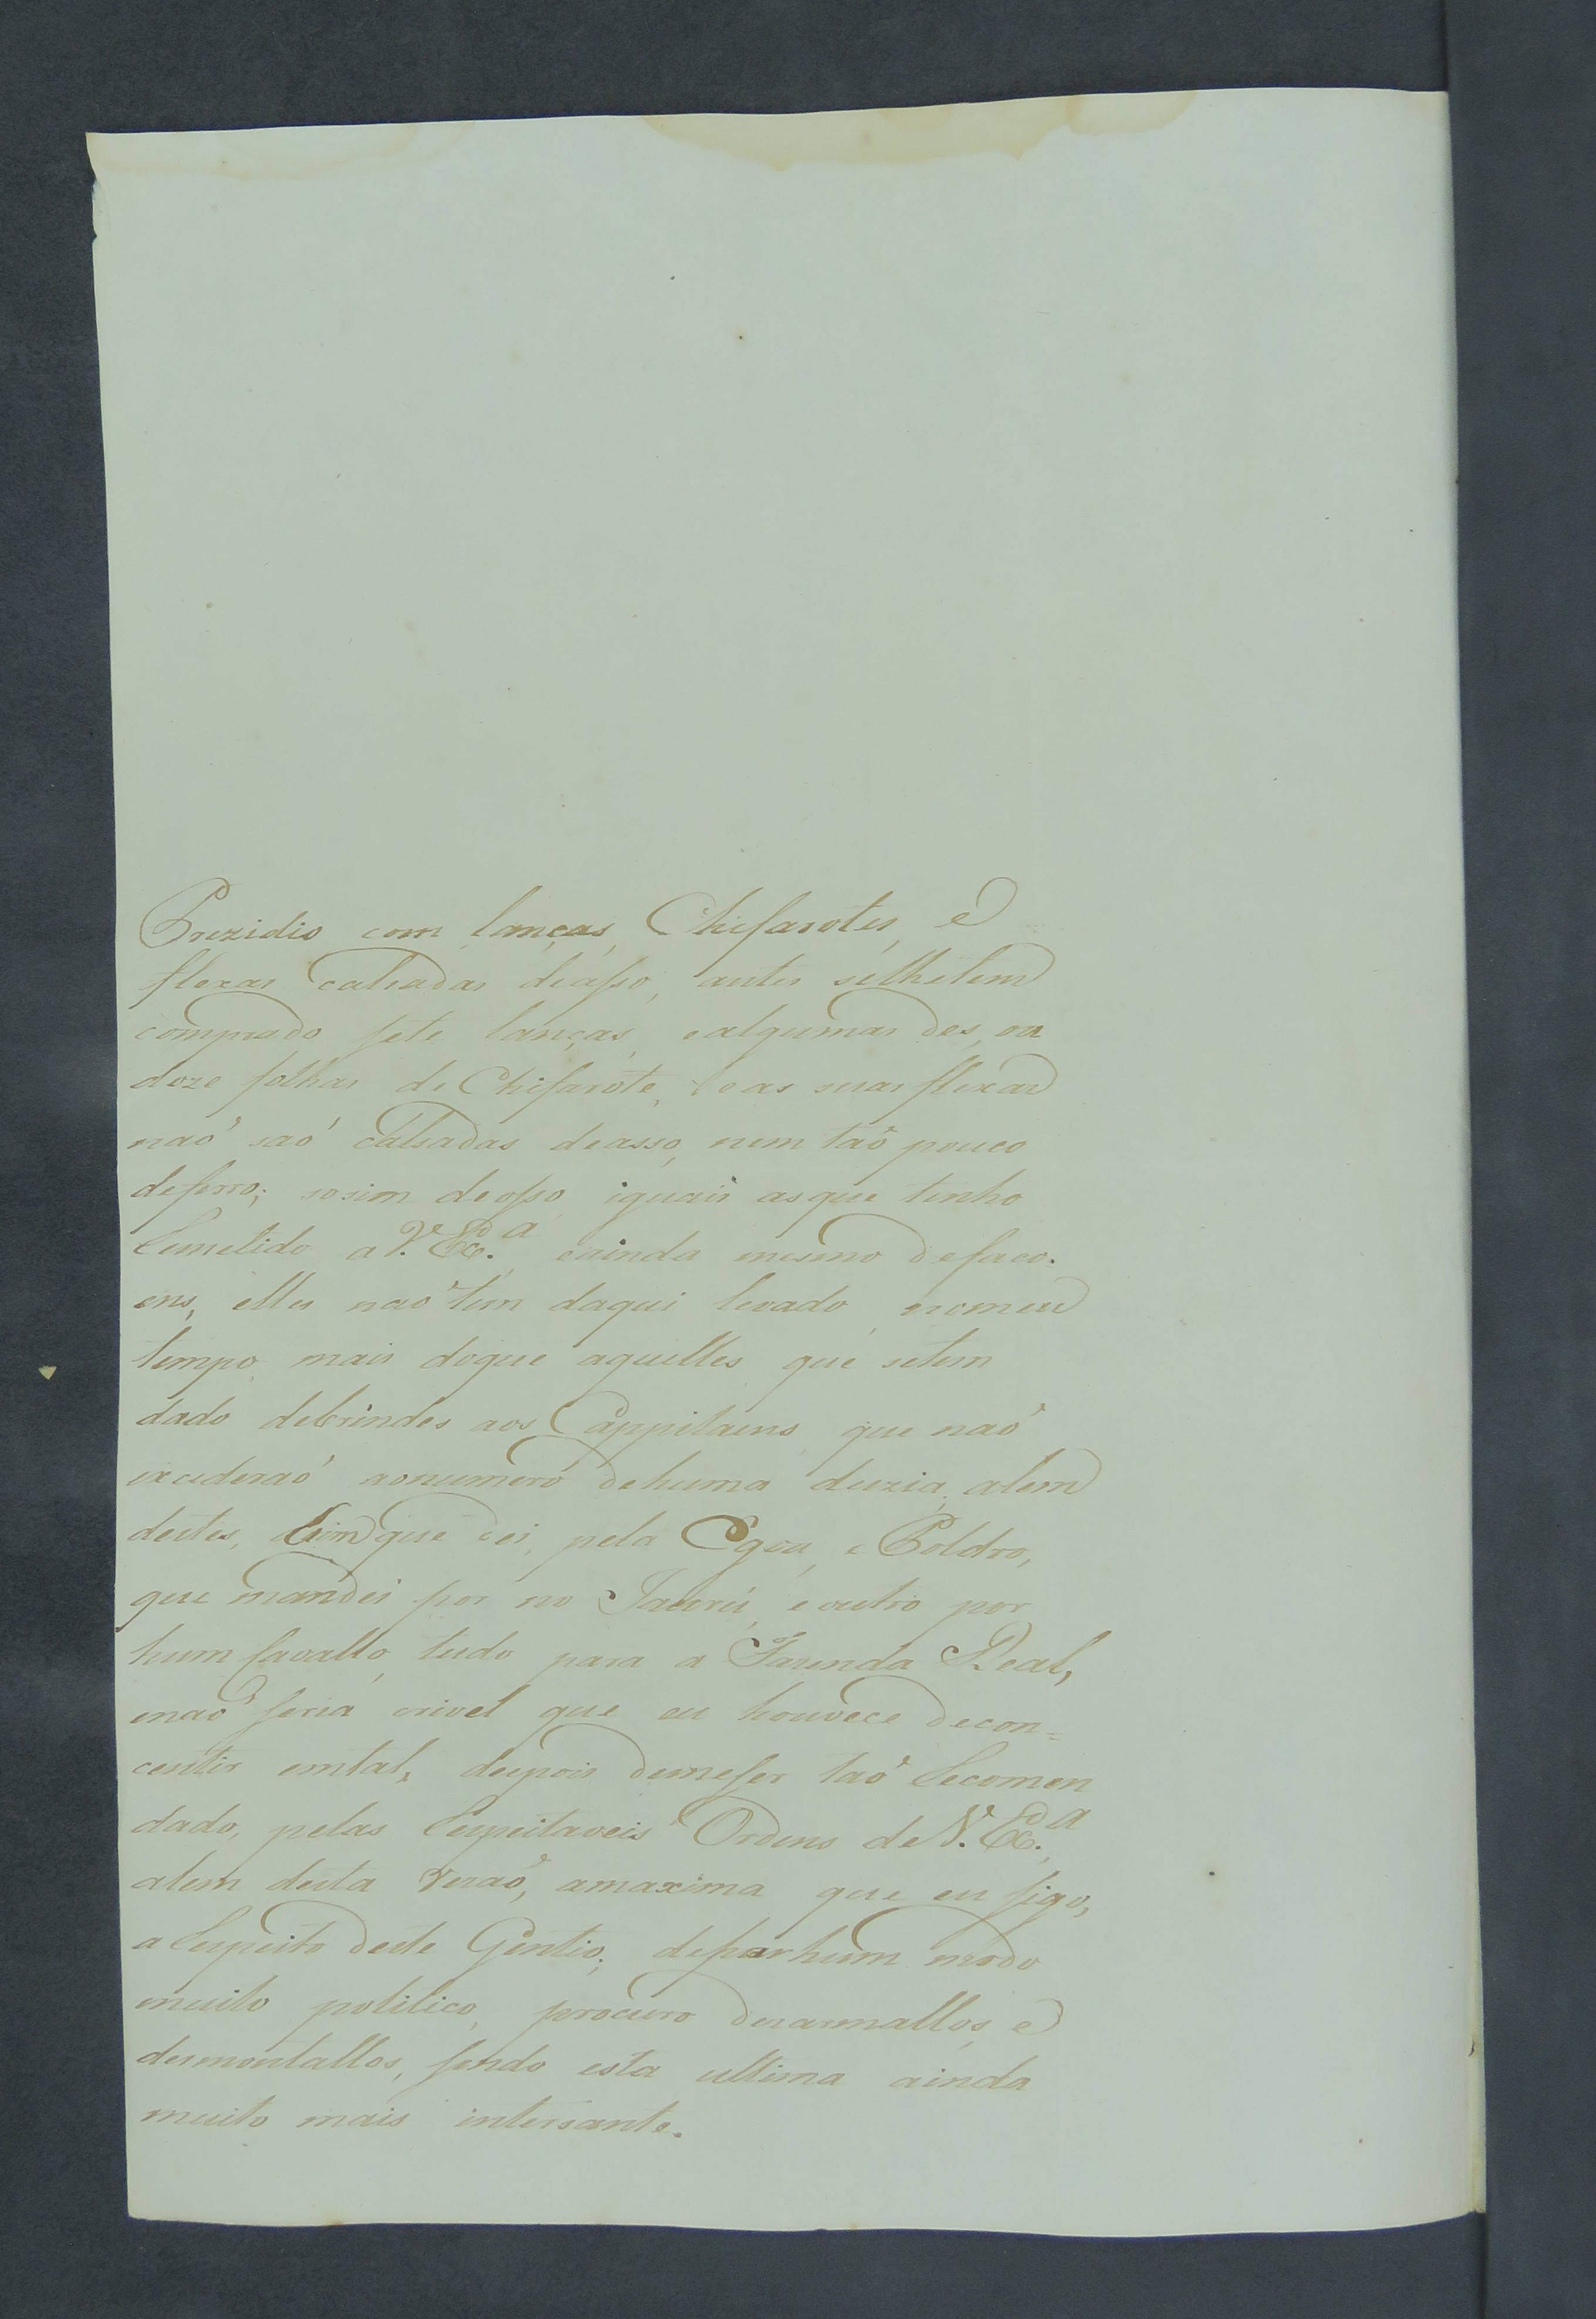 Prezidio com lanças, Chifarotes, e
flexas calsadas deasso, antes selhetem
comprado sete lanças, ealgumas des, ou
doze folhas de Chifarote, e as suas flexas
naõ saõ calsadas deasso, nem taõ pouco
deferro; sosim deosso, iguais asque tenho
Remetido a V. Ex.ª, eainda mesmo defaco.
ens, elles naõ tem daqui levado, nomeu
tempo, mais doque aquelles que setem
dado debrindes aos Cappitaens, que naõ
excederaõ aonumero dehuma duzia, alem
destes, hum que dei, pela Egoa, e Poldro,
que mandei por no Jaurú, e outro por
hum Cavallo, tudo para a Fazenda Real,
enaõ seria crivel que eu houvece decon=
centir emtal, depois demeser taõ Recomen
dado, pelas Respeitaveis Ordens de V. Ex.ª,
alem desta rezaõ, amaxima que eu sigo,
a Respeito deste Gentio; hé por hum modo
muito politico, procuro dezarmallos, e
desmontallos, sendo esta ultima ainda
muito mais intersante.